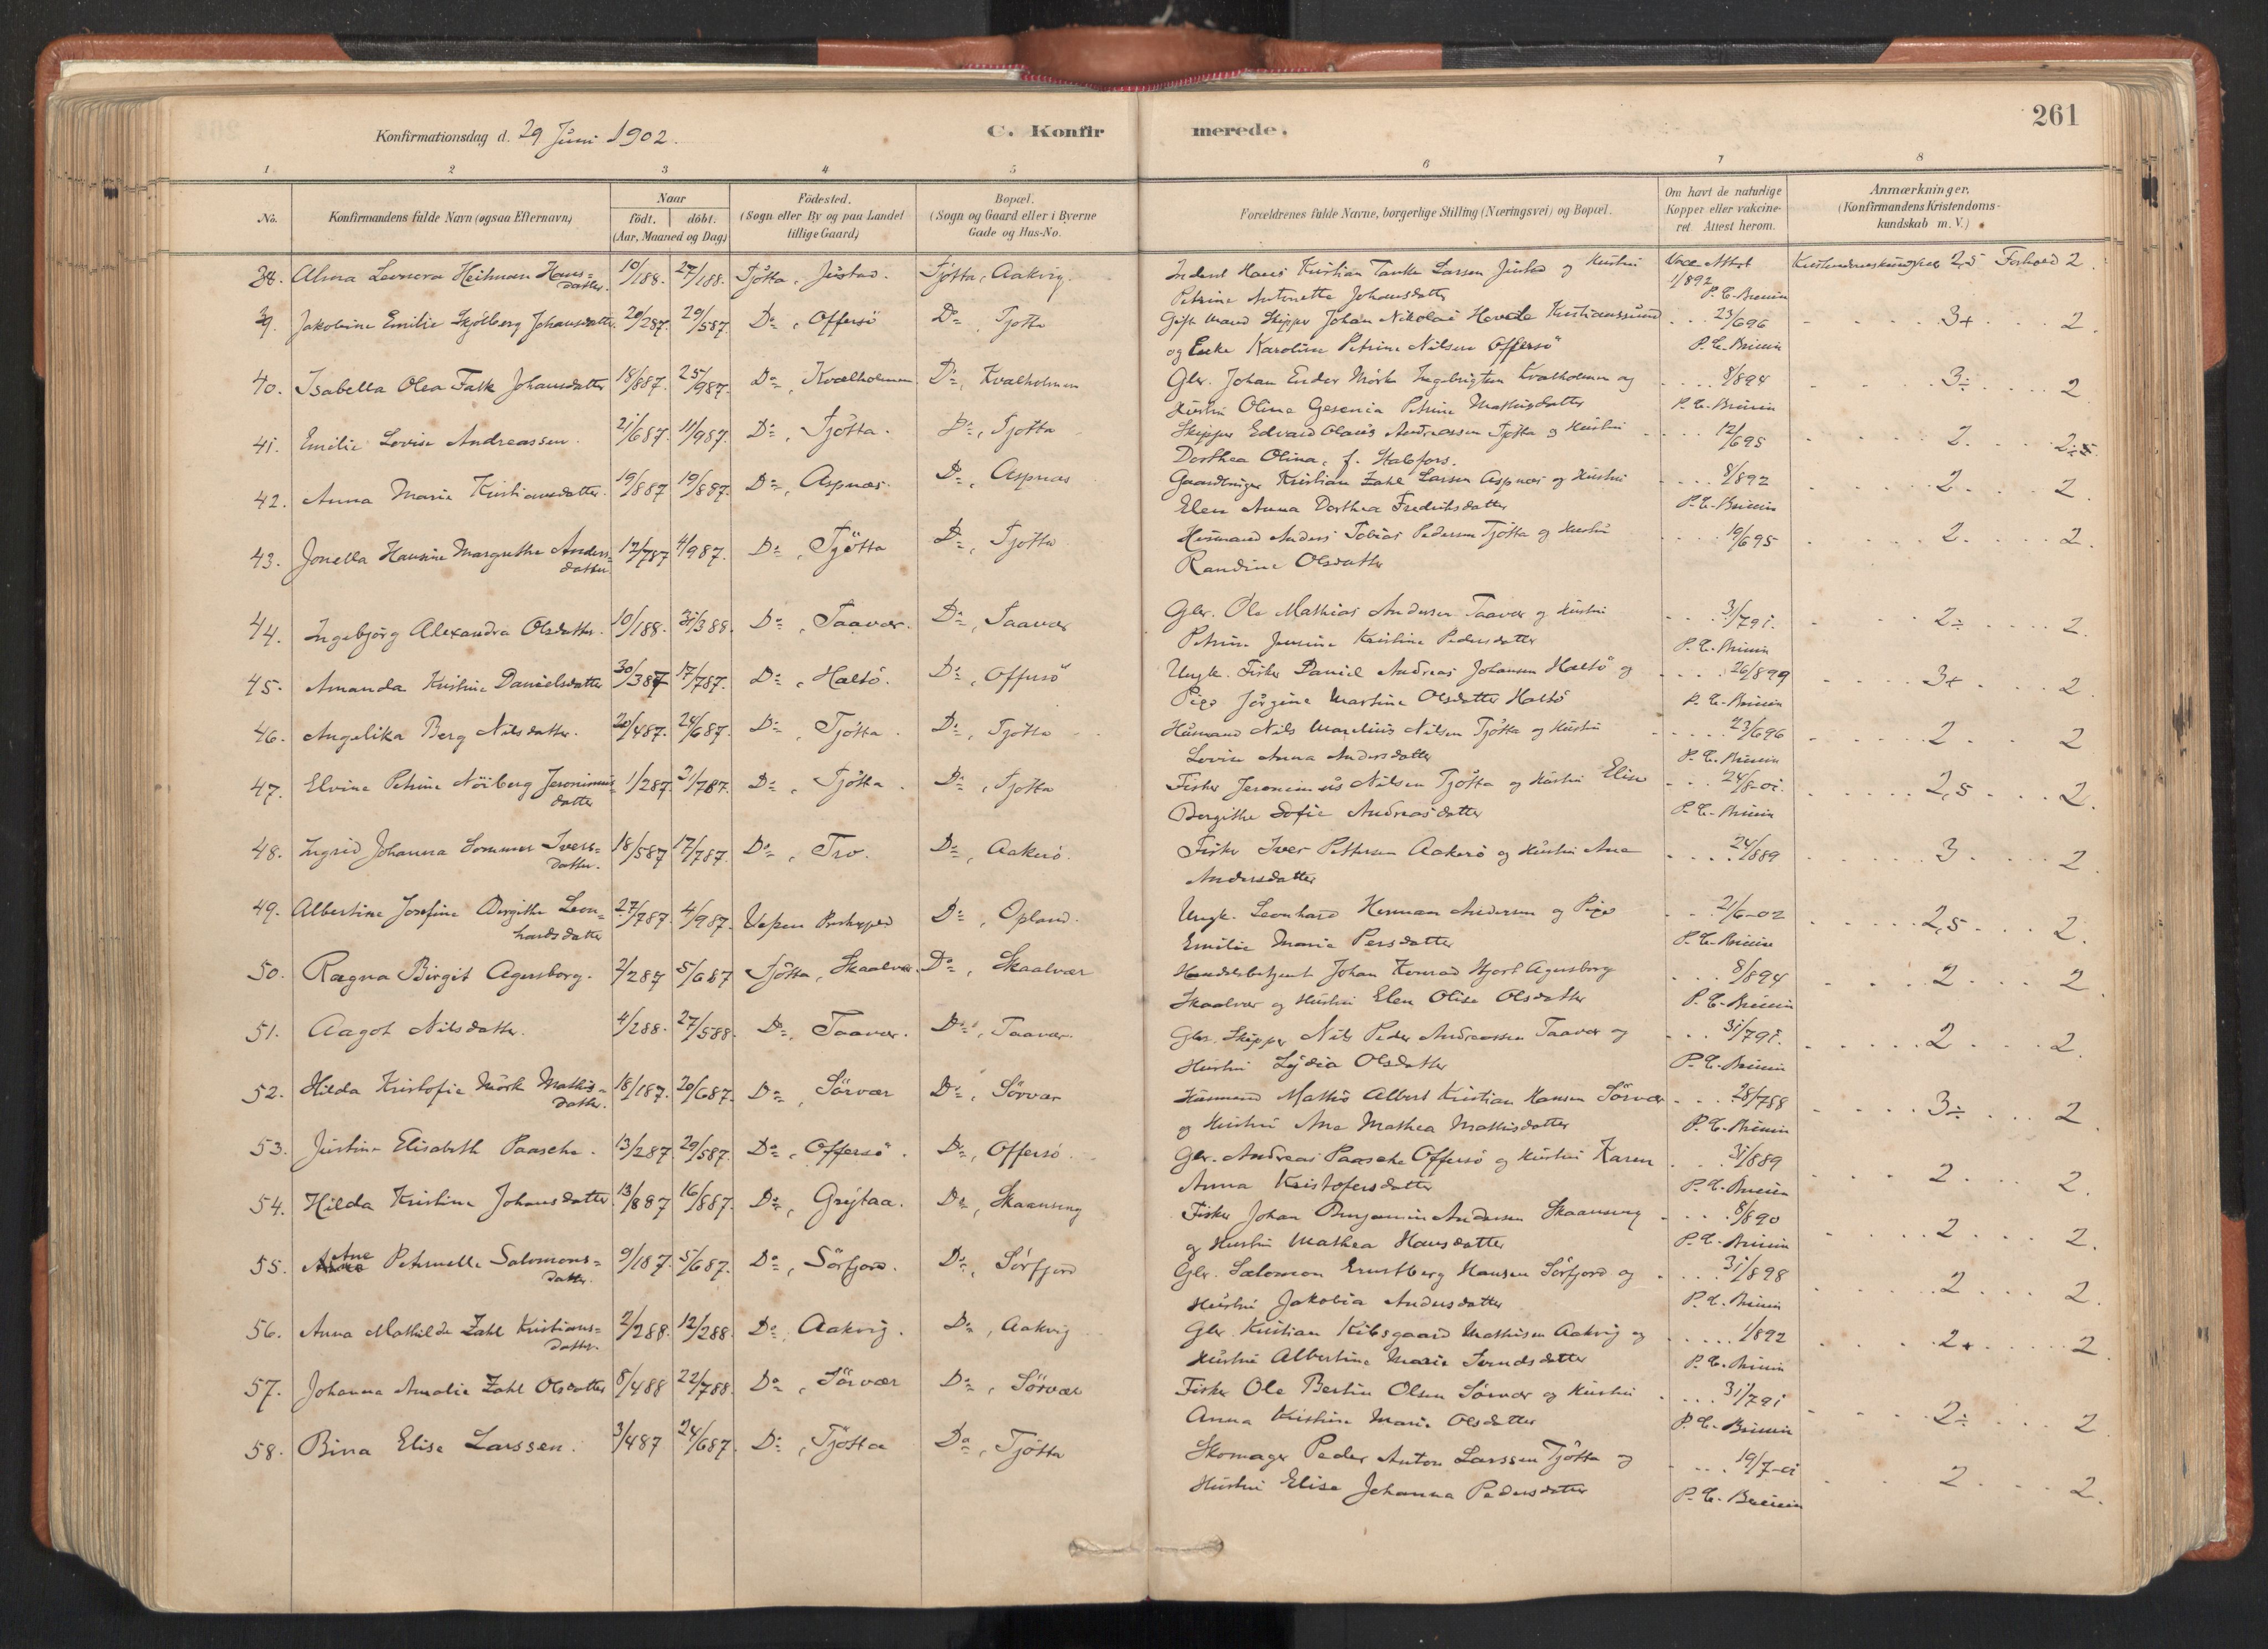 261
Konfirmationsdag d. 29 Juni 1902.
C. Konfirmerede.
1 2 3 4 5 6 7 8
No.
Konfirmandens fulde Navn (ogsaa Efternavn)
Naar
födt. döbt.
(Aar, Maaned og Dag)
Födested.
(Sogn eller By og paa Landet
tillige Gaard)
Bopæl.
(Sogn og Gaard eller i Byerne
Gade og Hus-No.
Forældrenes fulde Navne, borgerlige Stilling (Næringsvei) og Bopæl.
Om havt de naturlige
Kopper eller vakcine-
ret. Attest herom.
Anmærkninger.
(Konfirmandens Kristendoms-
kundskab m. V.)
38. Alma Leonora Heitman Hans=
datter. 10/188. 27/188. Tjötta, Justad. Tjötta, Aakvig.
Inderst Hans Kristian Tanke Larsen Justad og Hustru
Petrine Antonette Johansdatter
Vacc. Attest 1/892 Kristendomskundskab 2,5 Forhold 2
39. Jakobine Emilie Skjölberg Johansdatter 20/287. 29/587. Do, Offersö Do, Tjötta
Gift Mand Skipper Johan Nikolai Kristianssund 23/696 3+ 2.
og Enke Karoline Petrine Nilsen Offersö
40. Isabella Olea Falk Johansdatter 18/887. 25/987. Do, Kvalholmen Do, Kvalholmen
Gbr. Johan Ender Mörk Ingebrigtsen Kvalholmen og 8/894 3÷ 2
Hustru Oline Gesenia Petrine Mathisdatter
41. Emilie Lovise Andreassen. 21/687. 11/987. Do, Tjötta. Do, Tjötta
Skipper Edvard Olaus Andreassen Tjötta og Hustru 12/695 2.
Dorthea Olina, f. Halsfors.
42. Anna Marie Kristiansdatter. 19/887 19/887. Do, Aspnæs. Do, Aspnæs
Gaardbruger Kristian Zahl Larsen Aspnæs og Hustru 8/892 2. 2.
Elen Anna Dorthea Fredriksdatter
43. Jonella Hansine Margrethe Anders=
datter 12/787 4/987. Do, Tjötta Do, Tjötta
Husmand Anders Tobias Pedersen Tjötta og Hustru 19/695 2. 2.
Randine Olsdatter
44. Ingebjörg Alexandra Olsdatter. 10/188. 31/388. Do, Taavær. Do, Taavær
Gbr. Ole Mathias Andersen Taavær og Hustru 31/791. 2÷ 2.
Petrine Kristine Pedersdatter
45. Amanda Kristine Danielsdatter 30/387 17/787. Do, Haltö. Do, Offersö
Ungk. Fisker Daniel Andreas Johansen Haltö og 26/899 3+ 2.
Pige Jörgine Martine Olsdatter Haltö
46. Angelika Berg Nilsdatter. 20/487. 24/687. Do, Tjötta. Do, Tjötta
Husmand Nils Marelius Nilsen Tjötta og Hustru 23/696 2 2
Lovise Anna Andersdatter
47. Elvine Petrine Nöiberg Jeronimus=
datter 1/287 31/787. Do, Tjötta. Do, Tjötta
Fisker Jeronimus Nilsen Tjötta og Hustru Elise 24/8-01. 2,5 2.
Bergithe Sofie Andreasdatter
48. Ingrid Johanna Sommer Ivers=
datter. 18/587 17/787. Do, Tro. Do, Aakerö.
Fisker Iver Pettersen Aakerö og Hustru Ane 24/889 3 2.
Andersdatter
49. Albertine Josefine Bergithe Leon=
hardsdatter 27/787. 4/987. Vefsen Do, Opland.
Ungk. Leonhard Herman Andersen og Pige 21/6-02 2,5 2.
Emilie Marie Persdatter
50. Ragna Birgit Agersborg. 2/287 5/687 Tjötta, Skaalvær. Do, Skaalvær
Handelsbetjent Johan Konrad Hjort Agersborg 8/894 2 2.
Skaalvær og Hustru Elen Olise Olsdatter
51. Aagot Nilsdatter. 4/288. 27/588. Do, Taavær. Do, Taavær
Gbr. Skipper Nils Peder Andreassen Taavær og 31/791. 2 2.
Hustru Lydia Olsdatter
52. Hilda Kristofie Mörk Mathis=
datter. 18/187. 20/687. Do, Sörvær Do, Sörvær
Husmand Mathis Albert Kristian Hansen Sörvær 28/788 3÷ 2
og Hustru Ane Mathea Mathisdatter
53. Justine Elisabeth Paasche. 13/287. 29/587. Do, Offersö. Do, Offersö.
Gbr. Andreas Paasche Offersö og Hustru Karen 31/889 2 2.
Anna Kristofersdatter
54. Hilda Kristine Johansdatter. 13/887 16/887. Do, Grytaa. Do, Skaansing
Fisker Johan Benjamin Andersen Skaansing 8/890 2 2.
og Hustru Mathea Hansdatter
55. Ane Petrnelle Salomons=
datter. 9/187. 5/687. Do, Sörfjord. Do, Sörfjord
Gbr. Salomon Ernstberg Hansen Sörfjord og 31/898 2 2.
Hustru Jakobia Andersdatter
56. Anna Mathilde Zahl Kristians=
datter. 2/288. 12/288. Do, Aakvig. Do, Aakvig
Gbr. Kristian Kibsgaard Mathisen Aakvig og 1/892 2+ 2.
Hustru Albertine Marie Svendsdatter
57. Johanna Amalie Zahl Olsdatter 8/488 22/788. Do, Sörvær Do, Sörvær
Fisker Ole Bertin Olsen Sörvær og Hustru 31/791 2÷ 2
Anna Kristine Marie Olsdatter
58. Bina Elise Larssen. 3/487 24/687. Do, Tjötta Do, Tjötta
Skomager Peder Anton Larssen Tjötta og 19/7-01 2 2.
Hustru Elise Johanna Pedersdatter